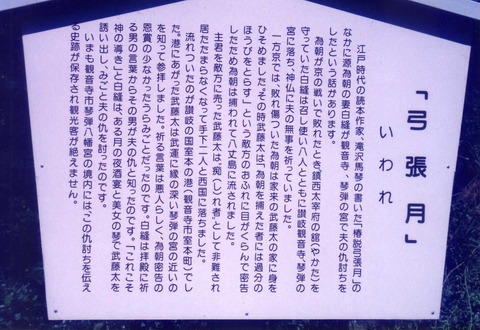 「弓張月」
いわれ
江戸時代の読本作家、滝沢馬琴の書いた「椿説弓張月」の
なかに源為朝の妻白縫が観音寺、琴弾の宮で夫の仇討ちを
したという話があります。
為朝が京の戦いで敗れたとき鎮西太宰府の舘(やかた)を
守っていた白縫は召し使い八人とともに讃岐観音寺、琴弾の
宮に落ち、神仏に夫の無事を祈っていました。
一方京では、敗れ傷ついた為朝は家来の武藤太の家に身を
ひそめました。その時武藤太は「為朝を捕えた者には過分の
ほうびをとらす」という敵方のおふれに目がくらんで密告
したため為朝は捕われて八丈島に流されました。
主君を敵方に売った武藤太は、痴(し)れ者」として非難され
居たたまらなくなって手下二人と西国に落ちました。
流れついたのが讃岐の国室本の港(観音寺市室本町)でし
た。港にあがった武藤太は武運に縁の深い琴弾の宮の近いの
を知って参拝しました。祈る言葉は悪人らしく、為朝密告の
恩賞の少なかったうらみごとだったのです。白縫は拝殿に祈
る男の言葉からその男が夫の仇と知ったのです。「これこそ
神の導き」と白縫は、ある月の夜酒宴と美女の琴で武藤太を
誘い出し、みごと夫の仇を討ったのです。
いまも観音寺市琴弾八幡宮の境内には、この仇討ちを伝え
る史跡が保存され観光客が絶えません。